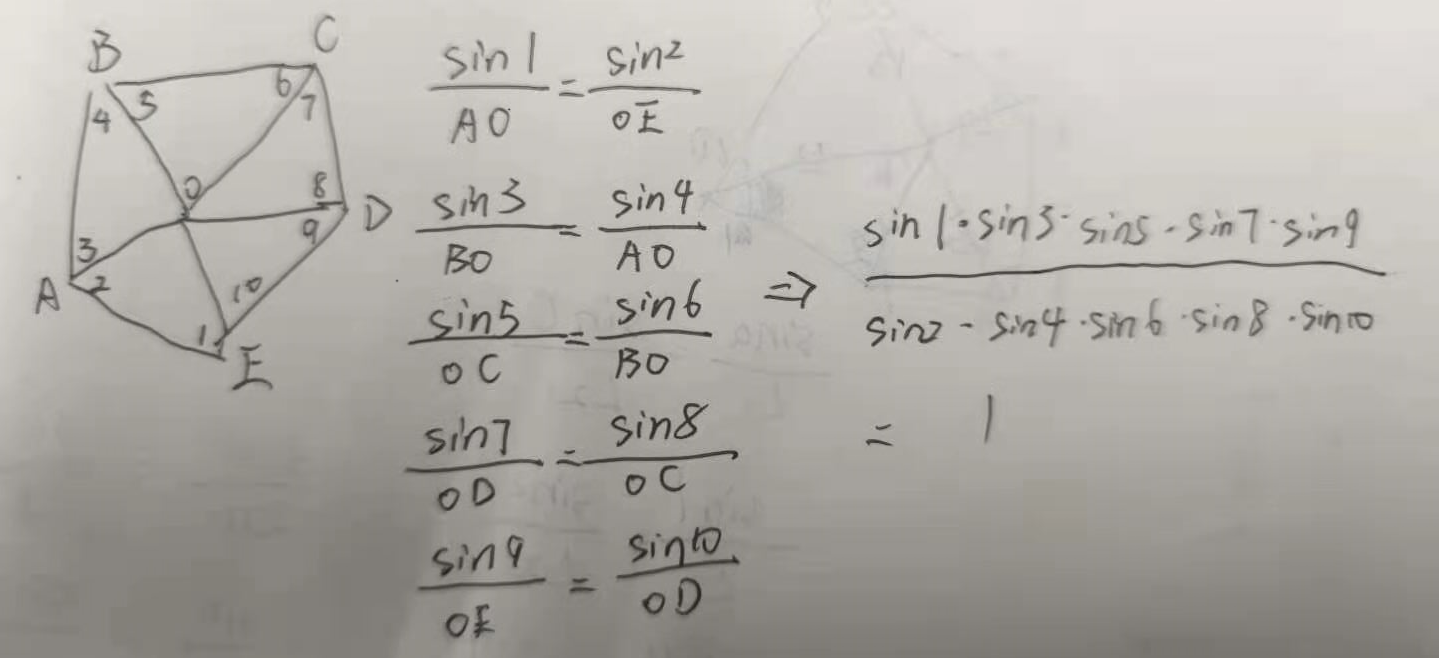 B
C
4 5
6 7
O
8
9
D
3
2
A
10
1
E
sin1/AO = sin2/OE
sin3/BO = sin4/AO
sin5/OC = sin6/BO
sin7/OD = sin8/OC
sin9/OE = sin10/OD
⇒ sin1·sin3·sin5·sin7·sin9 / sin2·sin4·sin6·sin8·sin10
= 1